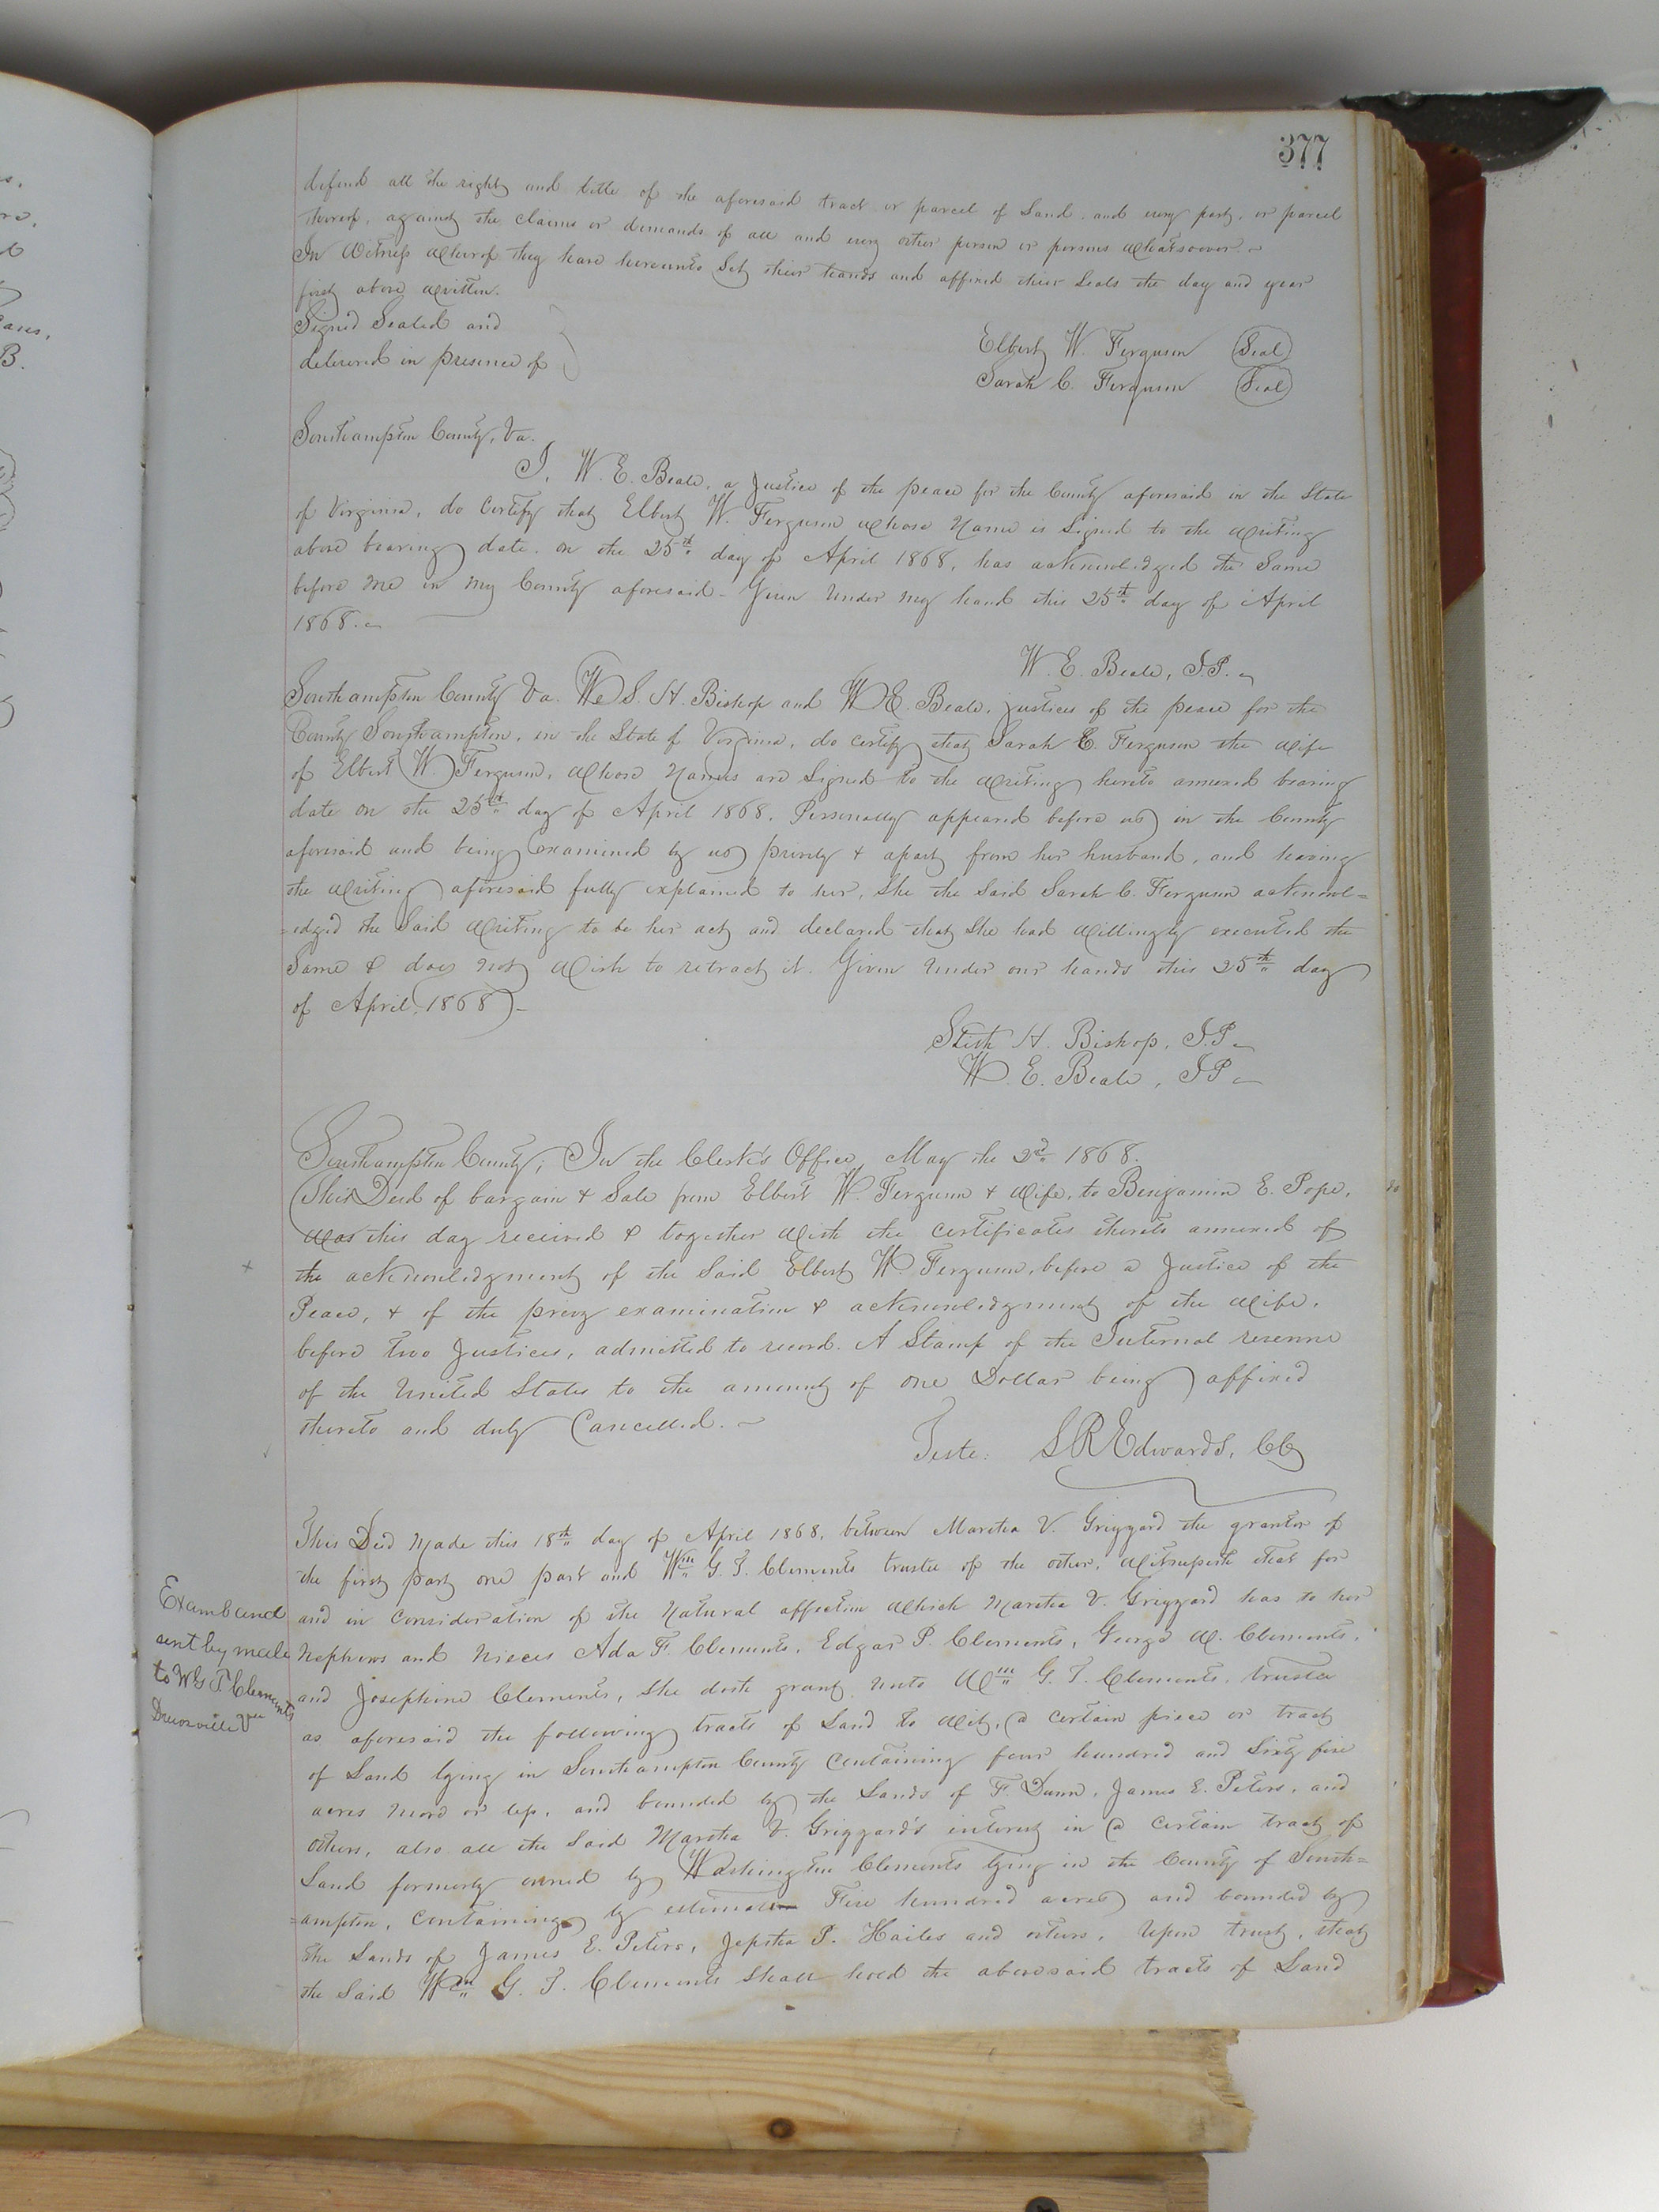 377
defend all the right and title of the aforesaid tract or parcel of Land and every part, or parcel
thereof, against the claims or demands of all and every other person or persons whatsoever.
In Witness whereof they have hereunto Set their hands and affixed their Seals the day and year
first above written.
Signed Sealed and
delivered in presence of
Elbert W. Ferguson (Seal)
Sarah C. Ferguson (Seal)
Southampton County, Va.
I, W. E. Beale, a Justice of the peace for the County aforesaid in the State
of Virginia, do Certify that Elbert W. Ferguson whose Name is Signed to the writing
above bearing date on the 25th day of April 1868, has acknowledged the Same
before me in my County aforesaid - Given Under my hand this 25th day of April
1868.
W. E. Beale, J.P.
Southampton County Va. We S. H. Bishop and W. E. Beale, justices of the peace for the
County Southampton, in the State of Virginia, do certify that Sarah C. Ferguson the wife
of Elbert W. Ferguson, whose Names are Signed to the writing hereto annexed bearing
date on the 25th day of April 1868, Personally appeared before us in the County
aforesaid and being examined by us privily & apart from her husband, and having
the writing aforesaid fully explained to her, She the Said Sarah C. Ferguson acknowl=
=edged the Said writing to be her act and declared that She had willingly executed the
Same & does not wish to retract it. Given Under our hands this 25th day
of April 1868 -
Stith H. Bishop, J.P.
W. E. Beale, J.P.
Southampton County; In the Clerk's Office May the 2nd 1868.
This Deed of bargain & Sale from Elbert W. Ferguson & wife, to Benjamin E. Pope,
was this day received & together with the certificates thereto annexed of
the acknowledgment of the Said Elbert W. Ferguson, before a Justice of the
Peace, & of the privy examination & acknowledgment of the wife,
before two Justices, admitted to record. A Stamp of the Internal revenue
of the United States to the amount of one Dollar being affixed
thereto and duly Cancelled.
Teste: L R Edwards, CC
This Deed Made this 18th day of April 1868, between Martha V. Griggard the grantor of
the first part one part and Wm G. T. Clements trustee of the other, Witnesseth that for
and in consideration of the Natural affection which Martha V. Griggard has to her
Exam'd and
sent by mail
to W G T Clements
Drewryville Va
Nephews and Nieces Ada F. Clements, Edgar P. Clements, George W. Clements,
and Josephine Clements, She doth grant unto Wm G. T. Clements, trustee
as aforesaid the following tracts of Land to wit, a certain piece or tract
of Land lying in Southampton County containing four hundred and Sixty five
acres more or less, and bounded by the Lands of F. Dunn, James E. Peters, and
others, also all the Said Martha V. Griggard's interest in a certain tract of
Land formerly owned by Washington Clements lying in the County of South=
=ampton, containing by estimation Five hundred acres and bounded by
the Lands of James E. Peters, Jeptha P. Hailes and others, Upon trust, that
the Said Wm G. T. Clements Shall hold the aforesaid tracts of Land